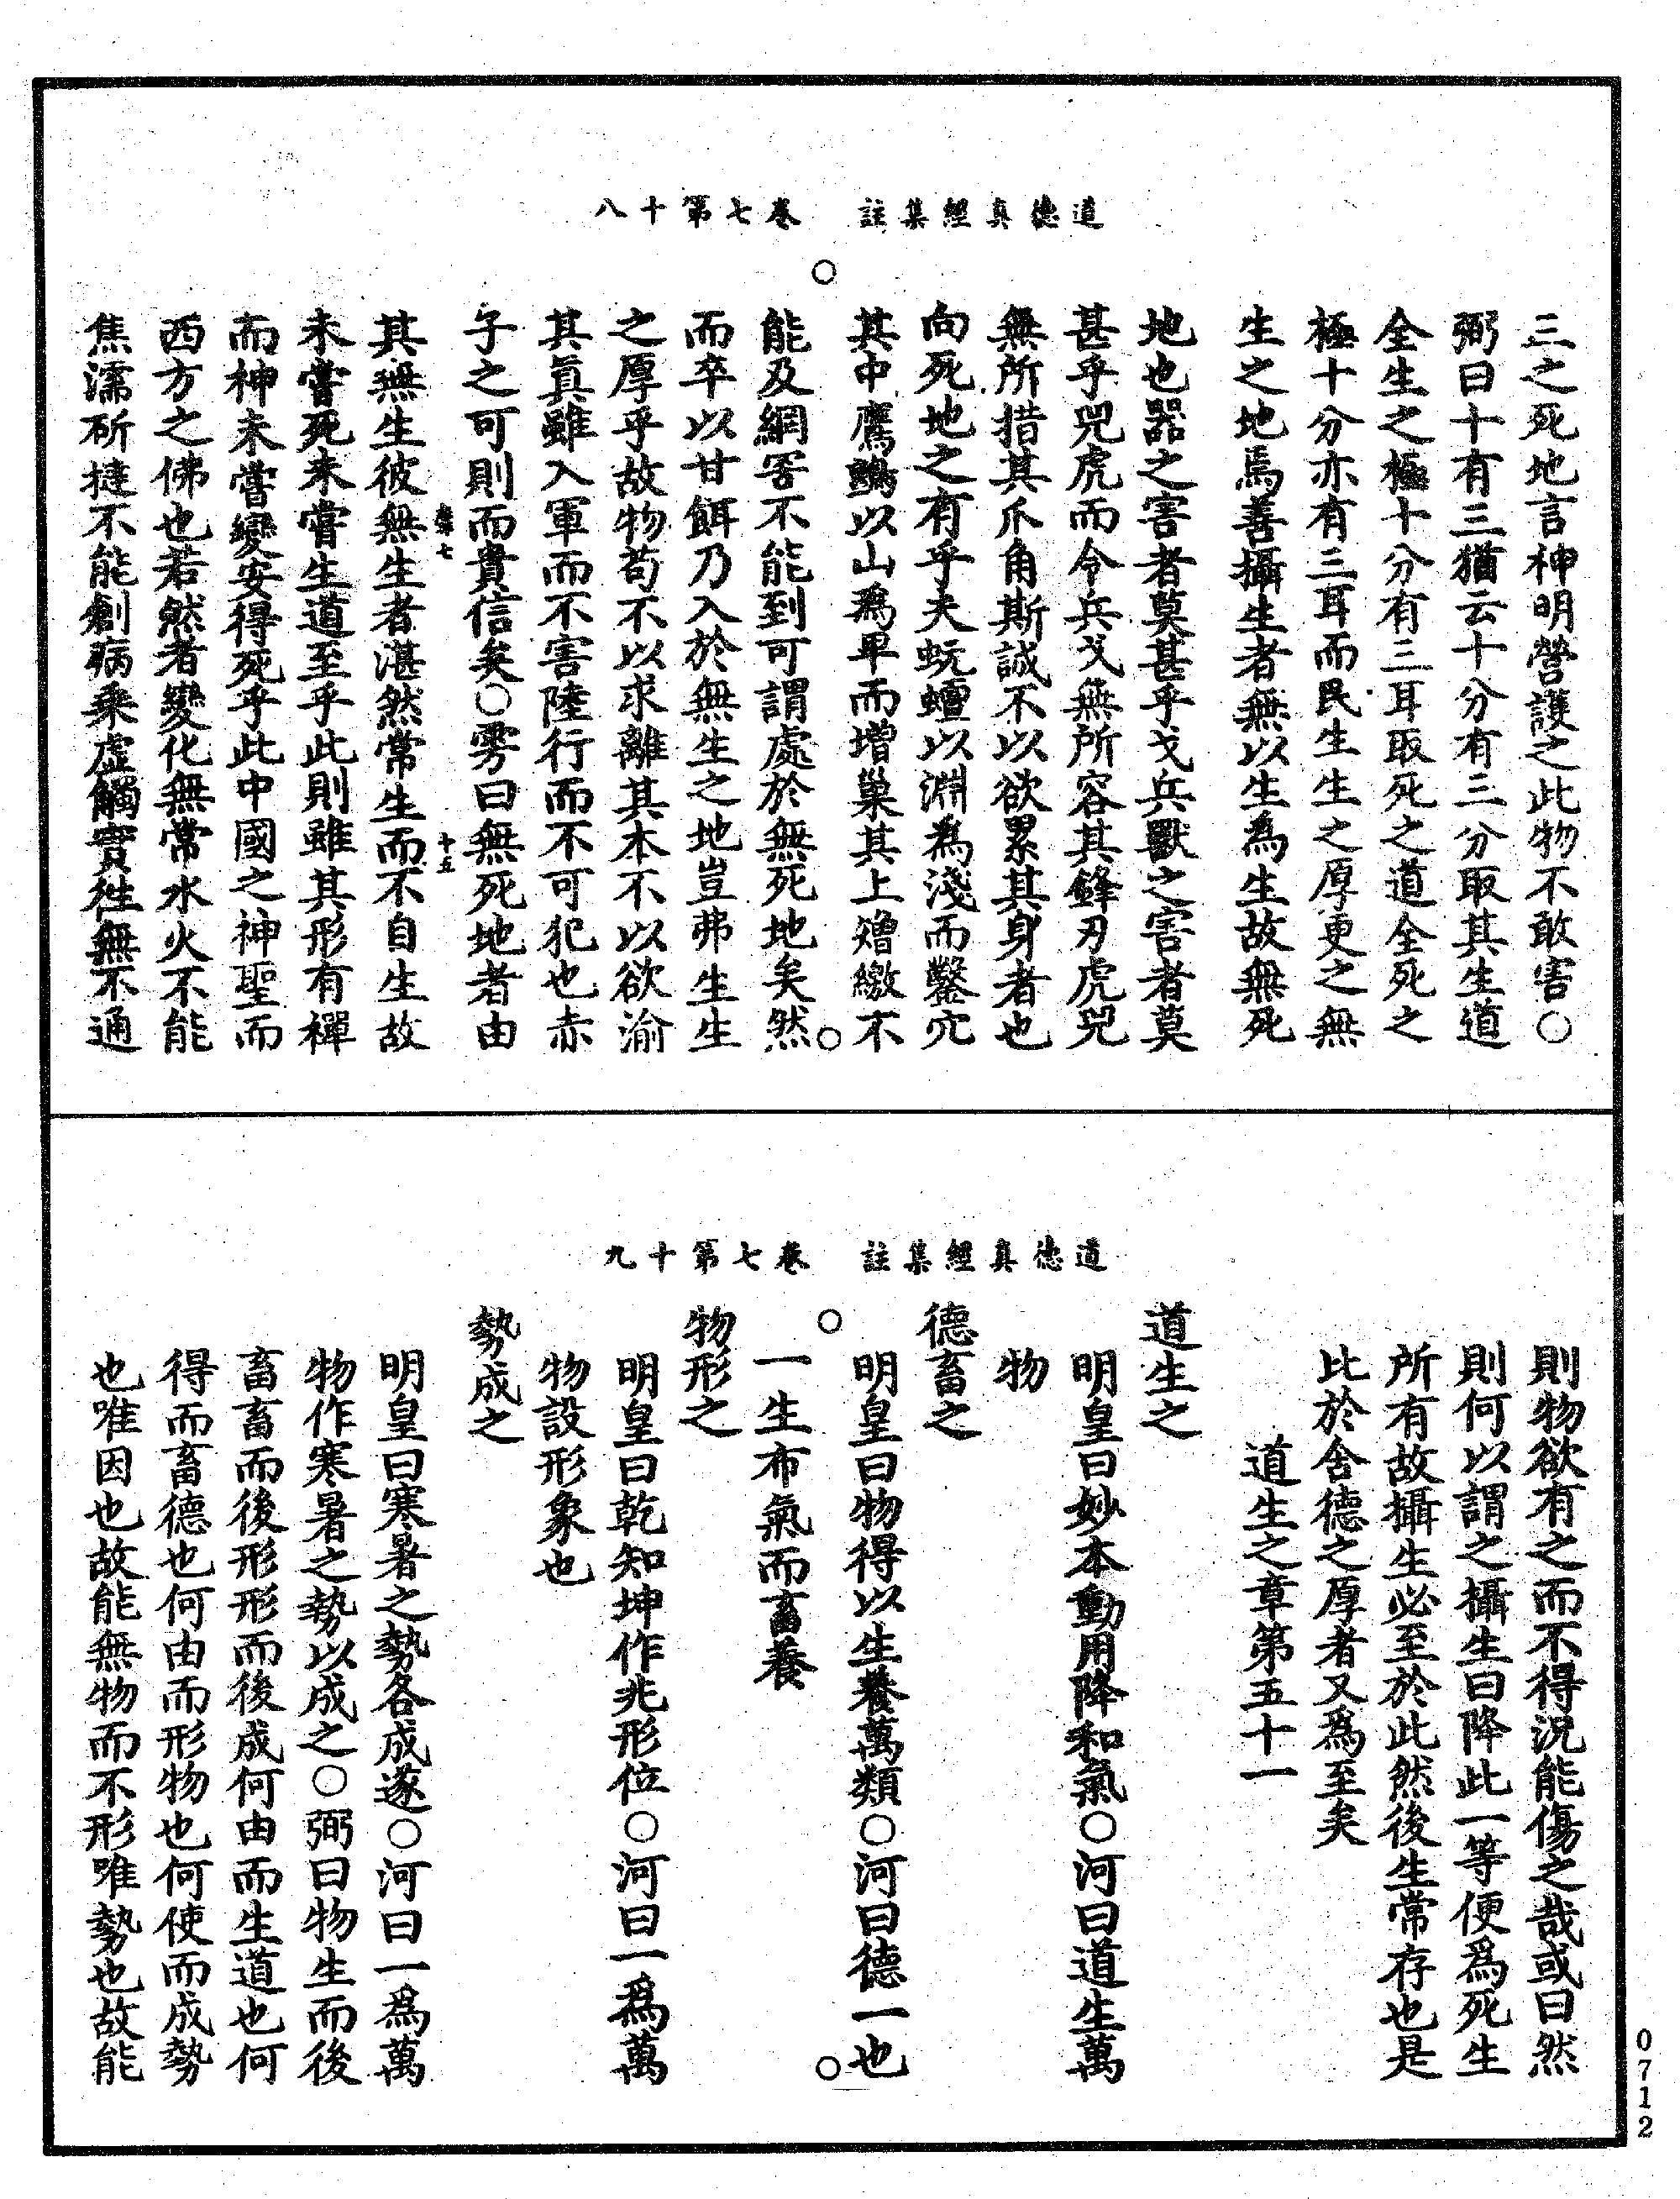 道德真經集註　卷七第十八
三之死地言神明營護之此物不敢害○
弼曰十有三猶云十分有三分取其生道
全生之極十分有三耳取死之道全死之
極十分亦有三耳而民生生之厚更之無
生之地焉善攝生者無以生為生故無死
地也器之害者莫甚乎戈兵獸之害者莫
甚乎兕虎而令兵戈無所容其鋒刃虎兕
無所措其爪角斯誠不以欲累其身者也
向死地之有乎夫蚖蟺以淵為淺而鑿穴
其中鷹鸇以山為卑而增巢其上矰繳不
能及網罟不能到可謂處於無死地矣然
而卒以甘餌乃入於無生之地豈弗生生
之厚乎故物苟不以求離其本不以欲渝
其眞雖入軍而不害陸行而不可犯也赤
子之可則而貴信矣○雱曰無死地者由
其無生彼無生者湛然常生而不自生故
未嘗死未嘗生道至乎此則雖其形有禪
而神未嘗變安得死乎此中國之神聖而
西方之佛也若然者變化無常水火不能
焦濡斫撻不能創痏乗虛觸實徃無不通
道德真經集註　卷七第十九
則物欲有之而不得況能傷之哉或曰然
則何以謂之攝生曰降此一等便爲死生
所有故攝生必至於此然後生常存也是
比於舍德之厚者又爲至矣
道生之章第五十一
道生之
明皇曰妙本動用降和氣○河曰道生萬
物
德畜之
明皇曰物得以生養萬類○河曰德一也
一生布氣而畜養
物形之
明皇曰乾知坤作兆形位○河曰一爲萬
物設形象也
勢成之
明皇曰寒暑之勢各成遂○河曰一爲萬
物作寒暑之勢以成之○弼曰物生而後
畜畜而後形形而後成何由而生道也何
得而畜德也何由而形物也何使而成勢
也唯因也故能無物而不形唯勢也故能
0712